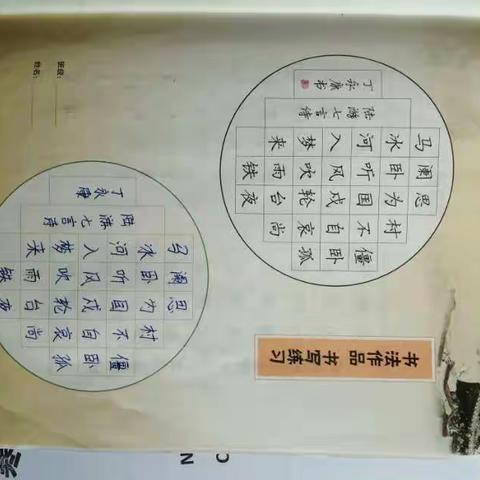 书法作品 书写练习
僵卧孤
村不自哀尚
思为国戍轮台夜
澜卧听风吹雨铁
马冰河入梦来
陆游七言诗
丁永康书
僵卧孤
村不自哀尚
思为国戍轮台夜
澜卧听风吹雨铁
马冰河入梦来
陆游七言诗
丁永康
班级：
姓名：